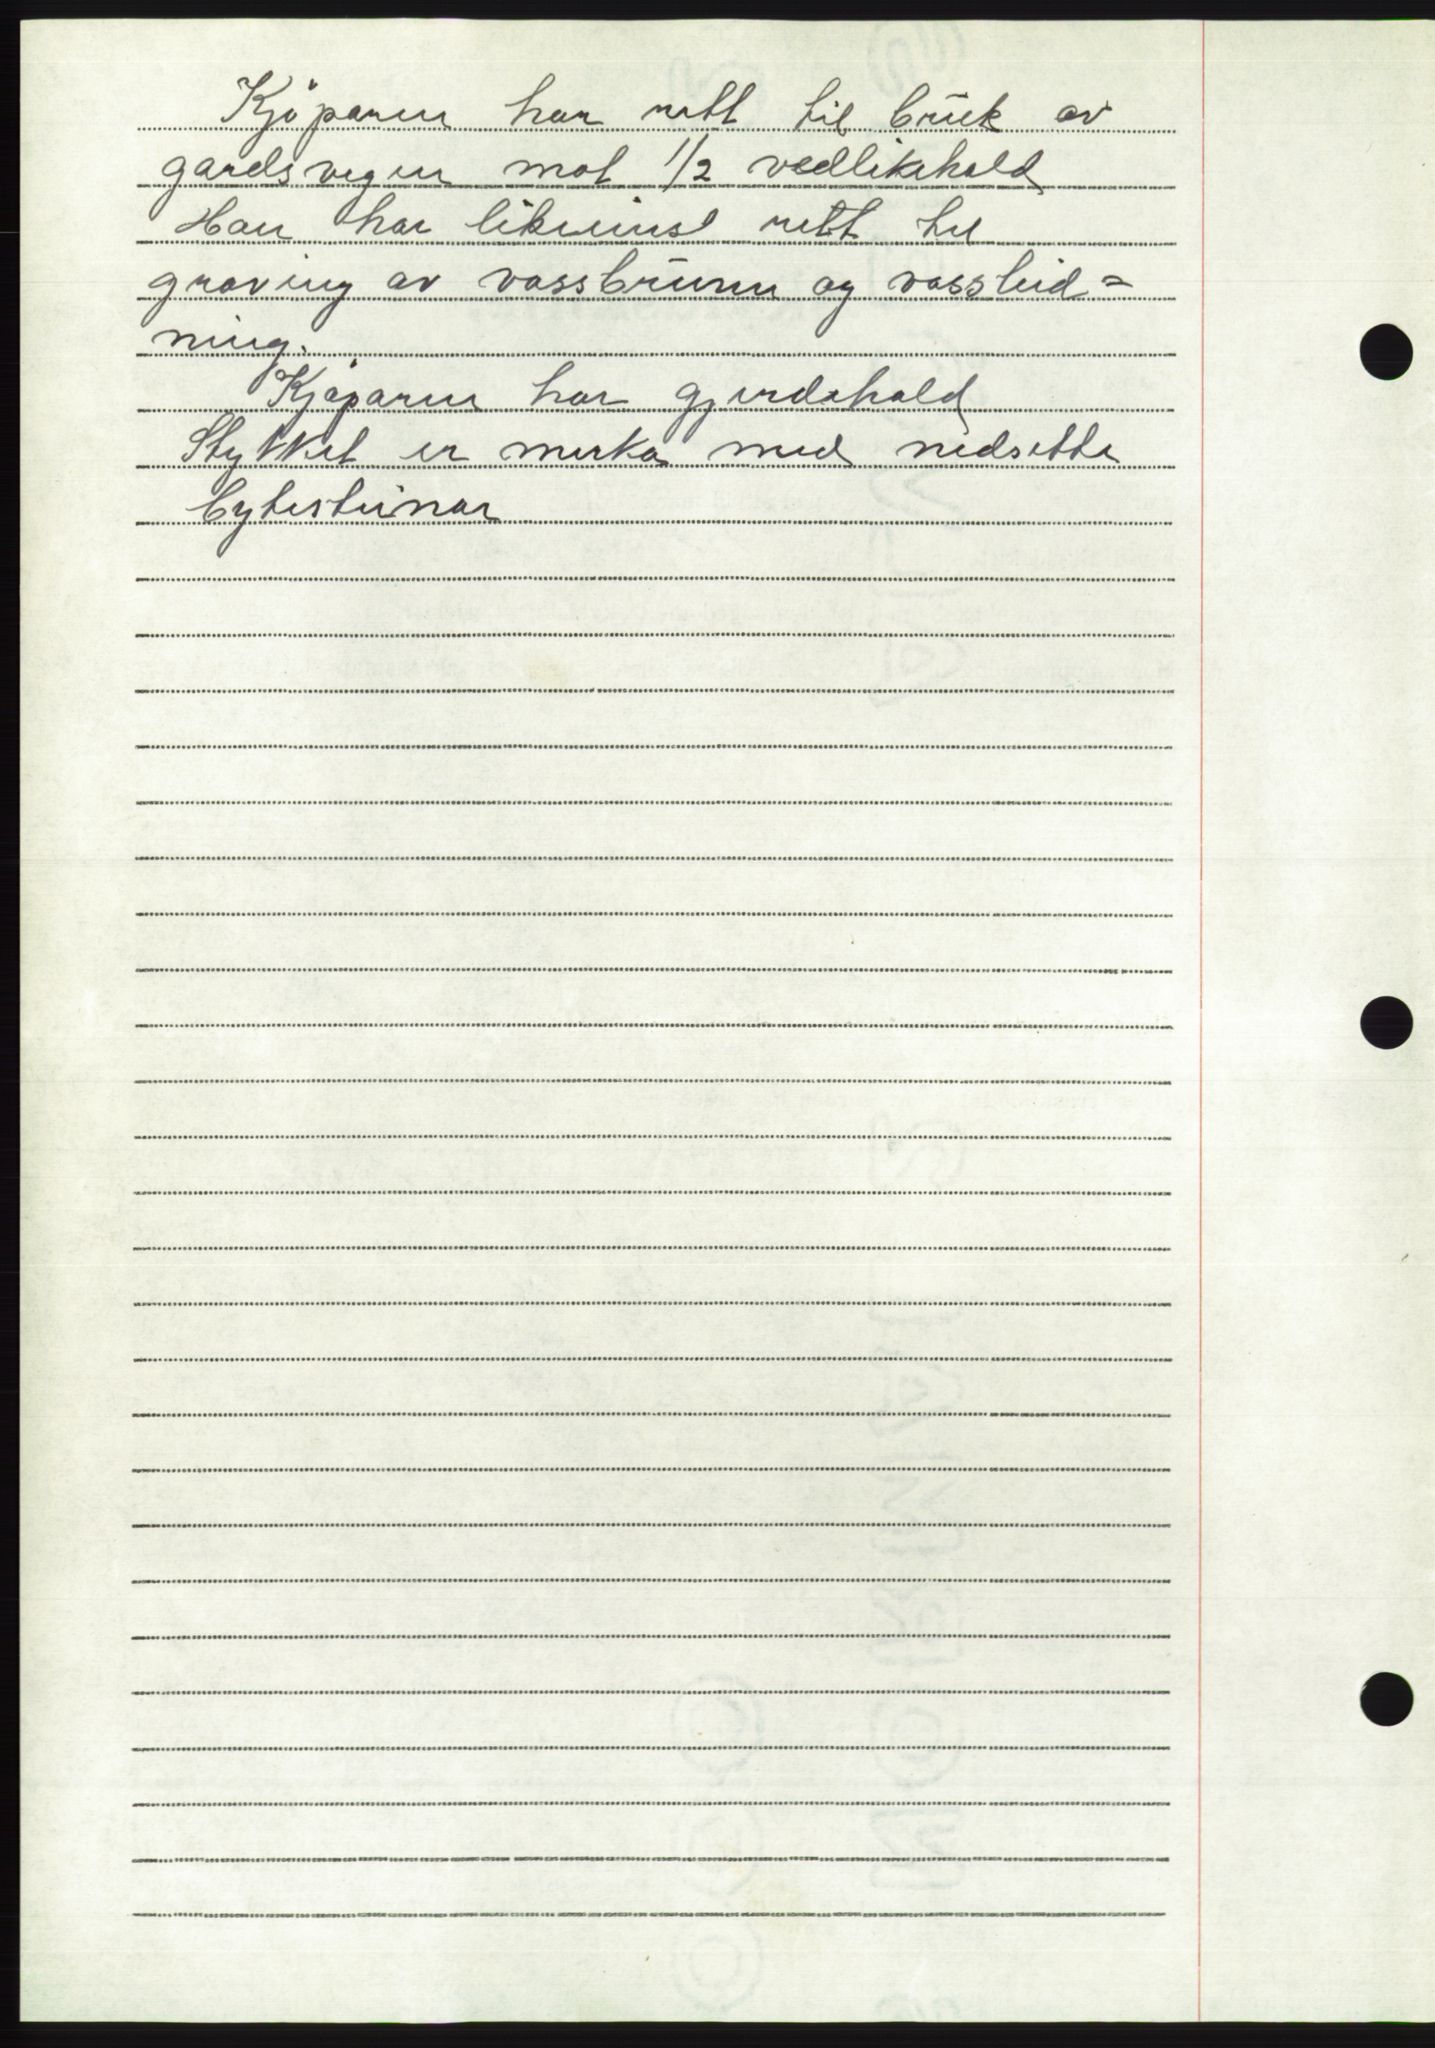 Kjøparen har rett til bruk av
gardsvegen mot 1/2 vedlikehald
Han har likeeins rett til
graving av vassbrunn og vassleid=
ning.
Kjøparen har gjerdahald
Stykket er merka med nedsette
bytesteinar